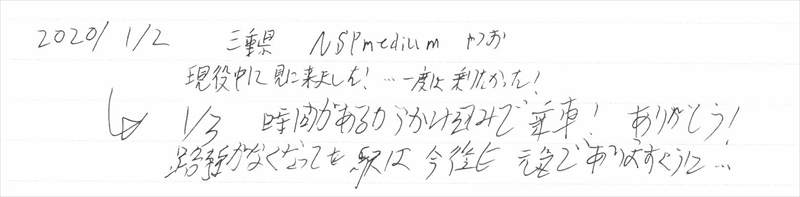 2020/1/2 三重県 NSPmedium やつお
現役中に見に来ました!…一度は乗りたかった!
↳ 1/3 時間があるからかけ込みで乗車! ありがとう!
路線がなくなっても駅は今後も元気でありますように…